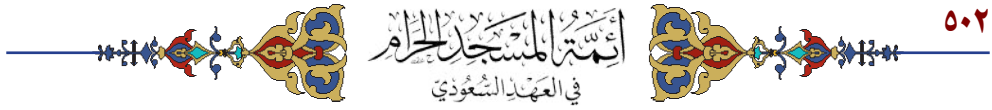 ٥٠٢
أئمة المسجد الحرام
في العهد السعودي